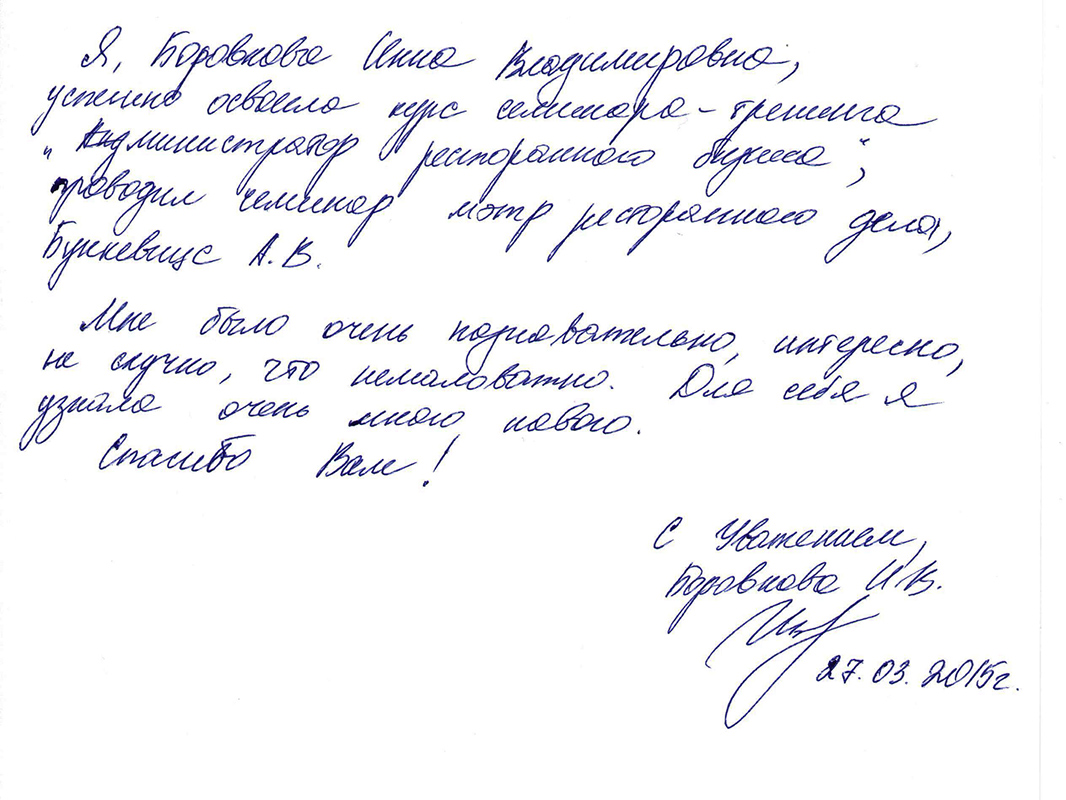 Я, Боровкова Инна Владимировна,
успешно освоила курс семинара-тренинга
"Администратор ресторанного бизнеса",
проводил семинар мэтр ресторанного дела,
Букневищс А.В.
Мне было очень познавательно, интересно,
не скучно, что немаловажно. Для себя я
узнала очень много нового.
Спасибо Вам!
С Уважением,
Боровкова И.В.
27.03.2015г.